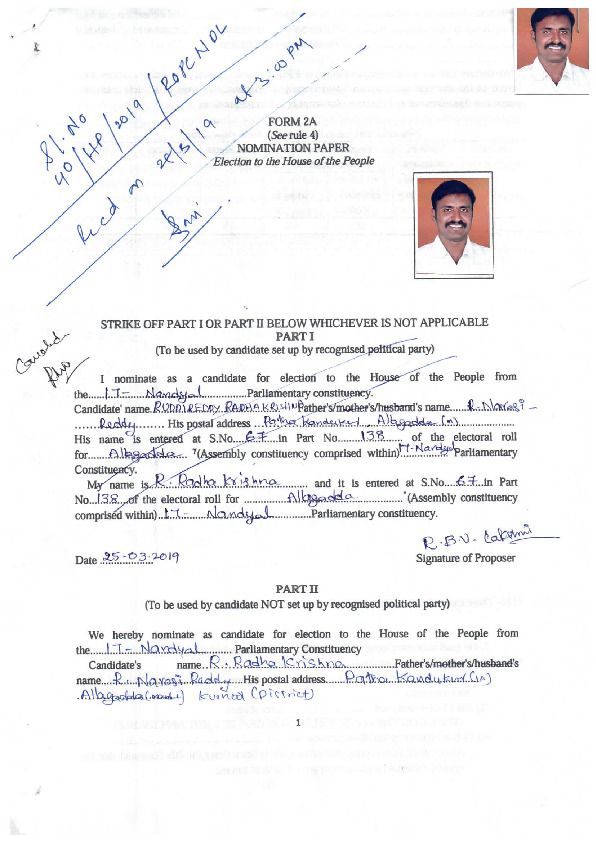 Sl. No
40/HP/2019/ROPC NDL
Recd on 25/3/19 at 3.00 PM
FORM 2A
(See rule 4)
NOMINATION PAPER
Election to the House of the People
STRIKE OFF PART I OR PART II BELOW WHICHEVER IS NOT APPLICABLE
PART I
(To be used by candidate set up by recognised political party)
I nominate as a candidate for election to the House of the People from
the....17- Nandyal....Parliamentary constituency.
Candidate' name.RUDDIREDDY RADHA KRISHNA Father's/mother's/husband's name....R. Narasi -
....Reddy.... His postal address..Patha Kandukur, Allagadda (M)....
His name is entered at S.No....67...in Part No....138.... of the electoral roll
for....Allagadda... (Assembly constituency comprised within) 17-Nandyal Parliamentary
Constituency.
My name is R. Radha Krishna.... and it is entered at S.No....67...in Part
No...138...of the electoral roll for ....Allagadda.... (Assembly constituency
comprised within)..17-....Nandyal....Parliamentary constituency.
R.B.V. Laksmi
Date 25-03-2019 Signature of Proposer
PART II
(To be used by candidate NOT set up by recognised political party)
We hereby nominate as candidate for election to the House of the People from
the....17- Nandyal.... Parliamentary Constituency
Candidate's name..R. Radha Krishna....Father's/mother's/husband's
name....R. Narasi Reddy....His postal address....Patha Kandukur (V)
Allagadda (Mandal) Kurnool (District)
1